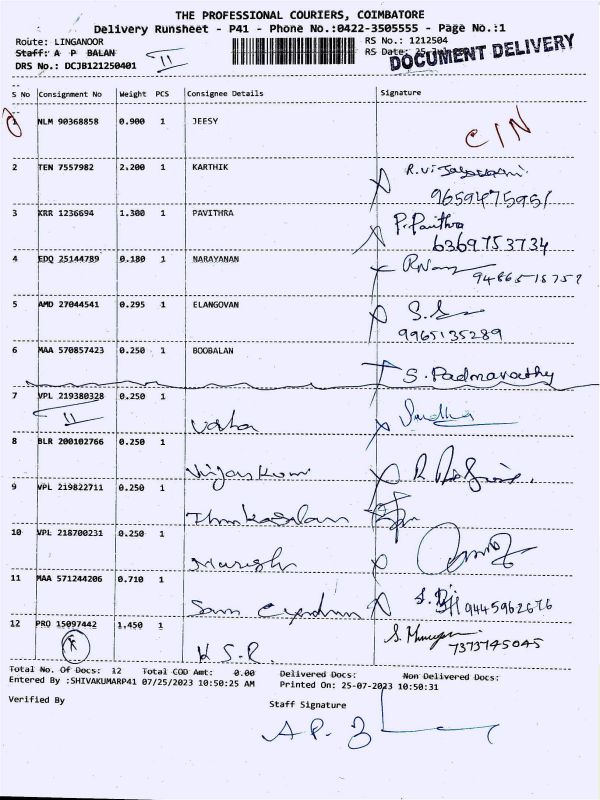 THE PROFESSIONAL COURIERS, COIMBATORE
Delivery Runsheet - P41 - Phone No.:0422-3505555 - Page No.:1
Route: LINGANOOR
RS No.: 1212504
Staff: A P BALAN
RS Date: 25
DOCUMENT DELIVERY
DRS No.: DCJB121250401
II
S No Consignment No Weight PCS Consignee Details Signature
1 NLM 90368858 0.900 1 JEESY
CIN
2 TEN 7557982 2.200 1 KARTHIK
9659475951
3 KRR 1236694 1.300 1 PAVITHRA P. Pavithra
6369753734
4 EDQ 25144789 0.180 1 NARAYANAN
5 AMD 27044541 0.295 1 ELANGOVAN
9965135289
6 MAA 570857423 0.250 1 BOOBALAN
S. Padmavathy
7 VPL 219380328 0.250 1
II
8 BLR 200102766 0.250 1
Vijaykumar
9 VPL 219822711 0.250 1
10 VPL 218700231 0.250 1
11 MAA 571244206 0.710 1
9445962676
12 PRO 15097442 1.450 1
7373745045
K.S.R.
Total No. Of Docs: 12 Total COD Amt: 0.00 Delivered Docs: Non Delivered Docs:
Entered By :SHIVAKUMARP41 07/25/2023 10:50:25 AM Printed On: 25-07-2023 10:50:31
Verified By
Staff Signature
A.P.